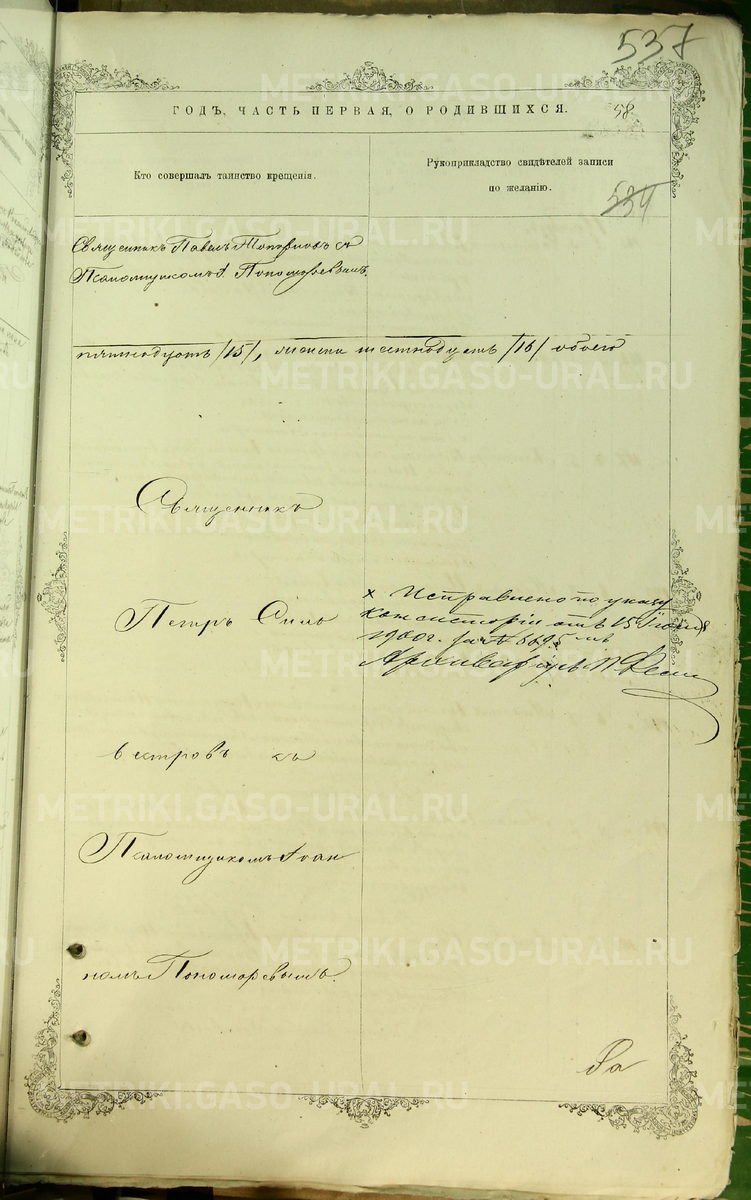 537
ГОДЪ, ЧАСТЬ ПЕРВАЯ, О РОДИВШИХСЯ.
58.
Кто совершалъ таинство крещенія.
Рукоприкладство свидѣтелей записи
по желанію.
534
Священникъ Павелъ Топорковъ съ
Псаломщикомъ І. Пономаревымъ.
пятнадцать /15/, женска шестнадцать /16/ обоего
Священникъ
Петръ Силь
вестровъ съ
Псаломщикомъ Іоан
номъ Пономаревымъ.
х Исправлено по указу
консисторіи отъ 15 Іюля
1900 г. за № 6695
Архиваріусъ
За
METRIKI.GASO-URAL.RU